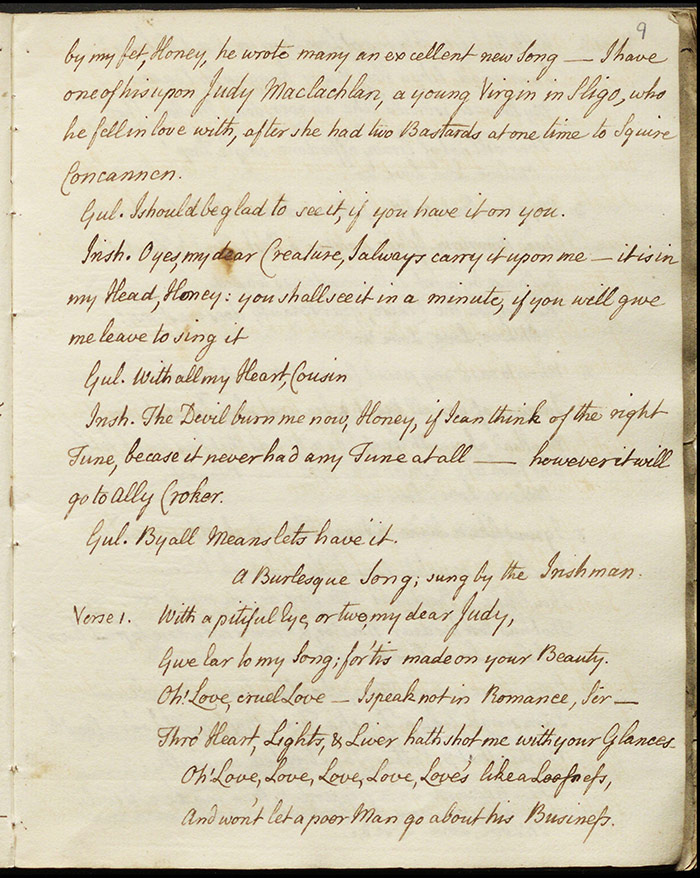 9
by my fet, Honey, he wrote many an excellent new Song — I have
one of his upon Judy Maclachlan, a young Virgin in Sligo, who
he fell in love with, after she had two Bastards at one time to Squire
Concannen.
Gul. I should be glad to see it, if you have it on you.
Irish. O yes, my dear Creature, I always carry it upon me — it is in
my Head, Honey: you shall see it in a minute, if you will give
me leave to sing it
Gul. With all my Heart, Cousin
Irish. The Devil burn me now, Honey, if I can think of the right
Tune, becase it never had any Tune at all — however it will
go to Ally Croker.
Gul. By all Means lets have it.
A Burlesque Song; sung by the Irishman.
Verse 1. With a pitiful Eye, or two, my dear Judy,
Give Ear to my Song; for 'tis made on your Beauty.
Oh! Love, cruel Love — I speak not in Romance, Sir —
Thro' Heart, Lights, & Liver hath shot me with your Glances
Oh! Love, Love, Love, Love, Love's like a Looseness,
And won't let a poor Man go about his Business.